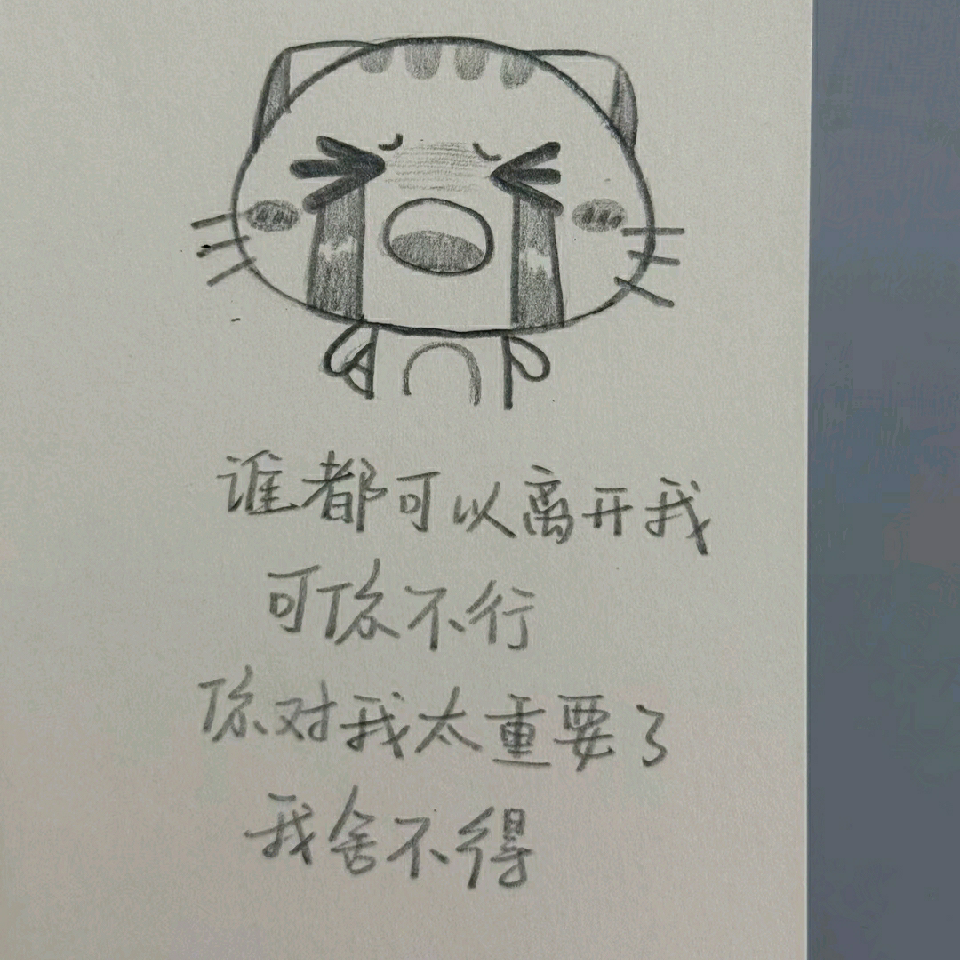 谁都可以离开我
可你不行
你对我太重要了
我舍不得